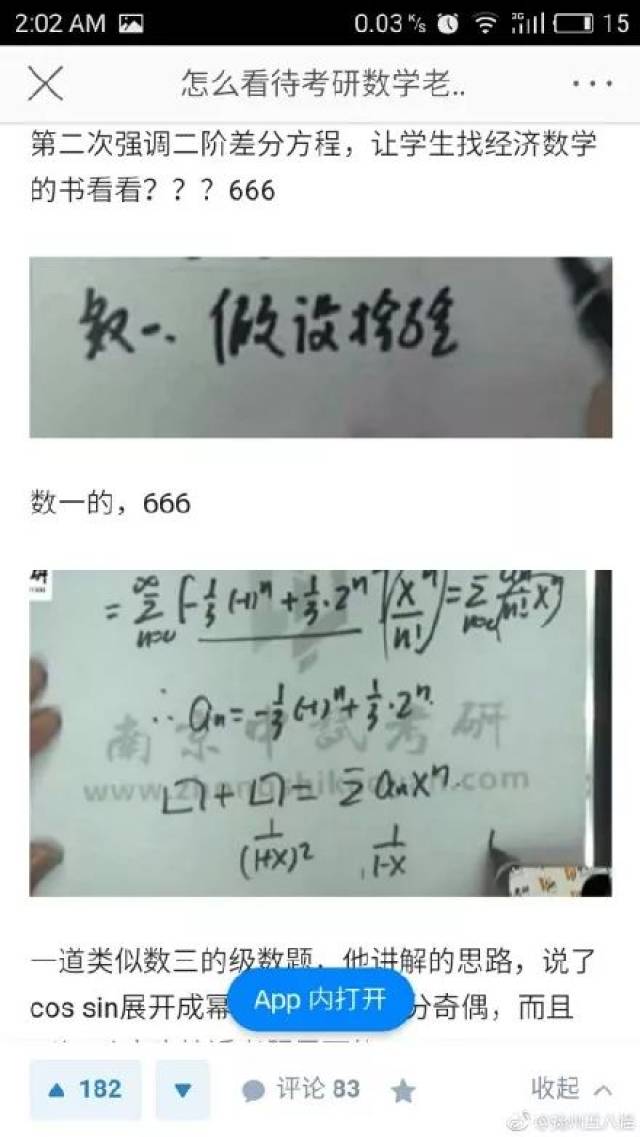 2:02 AM 0.03 K/s 3G 15
怎么看待考研数学老..
第二次强调二阶差分方程，让学生找经济数学
的书看看？？？666
数一、假设检验
数一的，666
= ∑ n=0 ∞ [-1/3 (-1)^n + 1/3·2^n] (x^n/n!) = ∑ n=0 (an/n! x^n)
∴ an = -1/3 (-1)^n + 1/3·2^n.
南京中试考研
□ + □ = ∑ an x^n.
1/(1+x)^2 1/1-x
一道类似数三的级数题，他讲解的思路，说了
cos sin展开成幂 App 内打开 分奇偶，而且
182 评论 83 收起